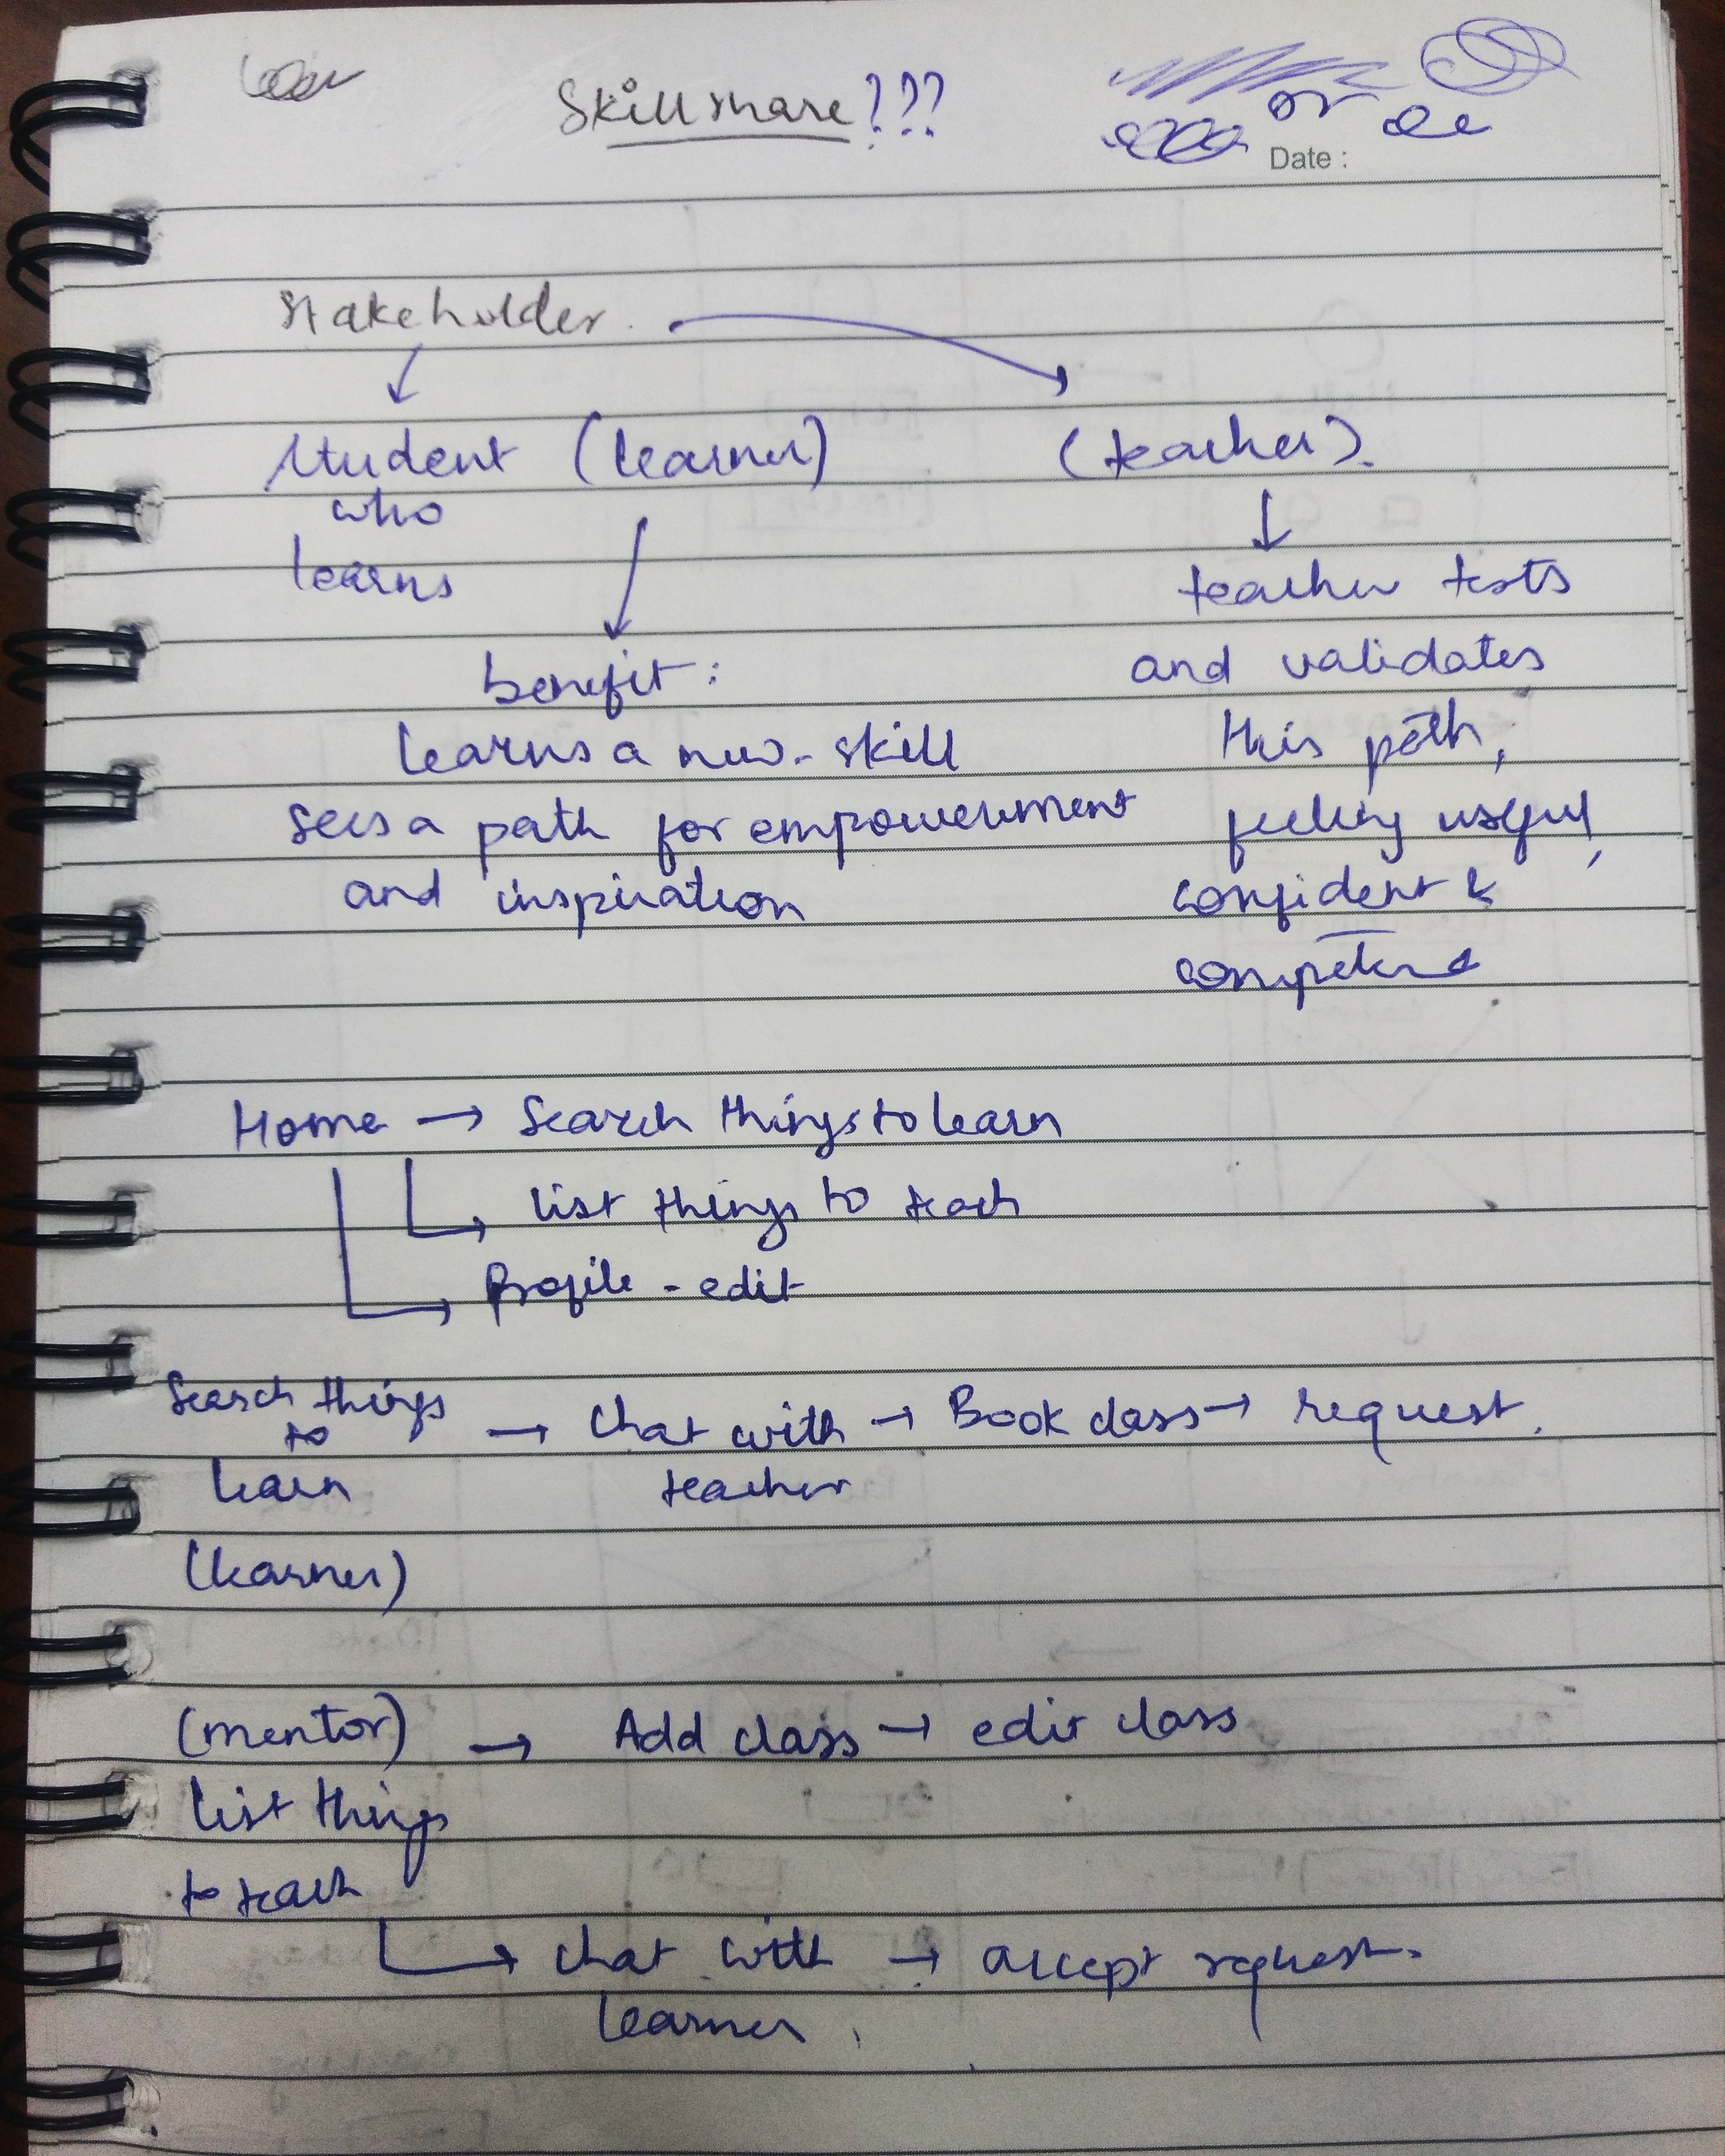 Skillshare???
or
Date :
Stakeholder.
Student (learner) (teacher).
who
learns
teacher tests
and validates
this path,
feeling useful,
confident &
competent
benefit:
learns a new skill
sees a path for empowerment
and inspiration
Home → Search things to learn
list things to teach
Profile - edit
Search things → Chat with → Book class → request.
to
learn teacher
(learner)
(mentor) → Add class → edit class
list things
to teach
→ chat with → accept request.
learner